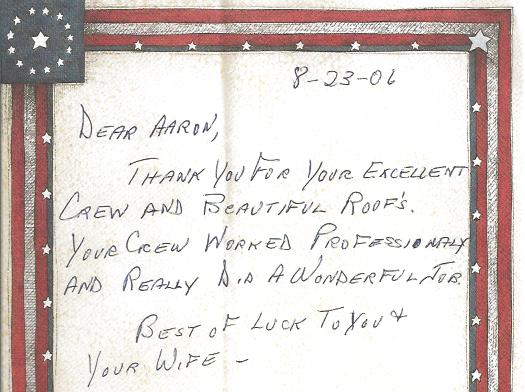 8-23-06
DEAR AARON,
THANK YOU FOR YOUR EXCELLENT
CREW AND BEAUTIFUL ROOF'S.
YOUR CREW WORKED PROFESSIONALY
AND REALLY DID A WONDERFUL JOB.
BEST OF LUCK TO YOU &
YOUR WIFE -